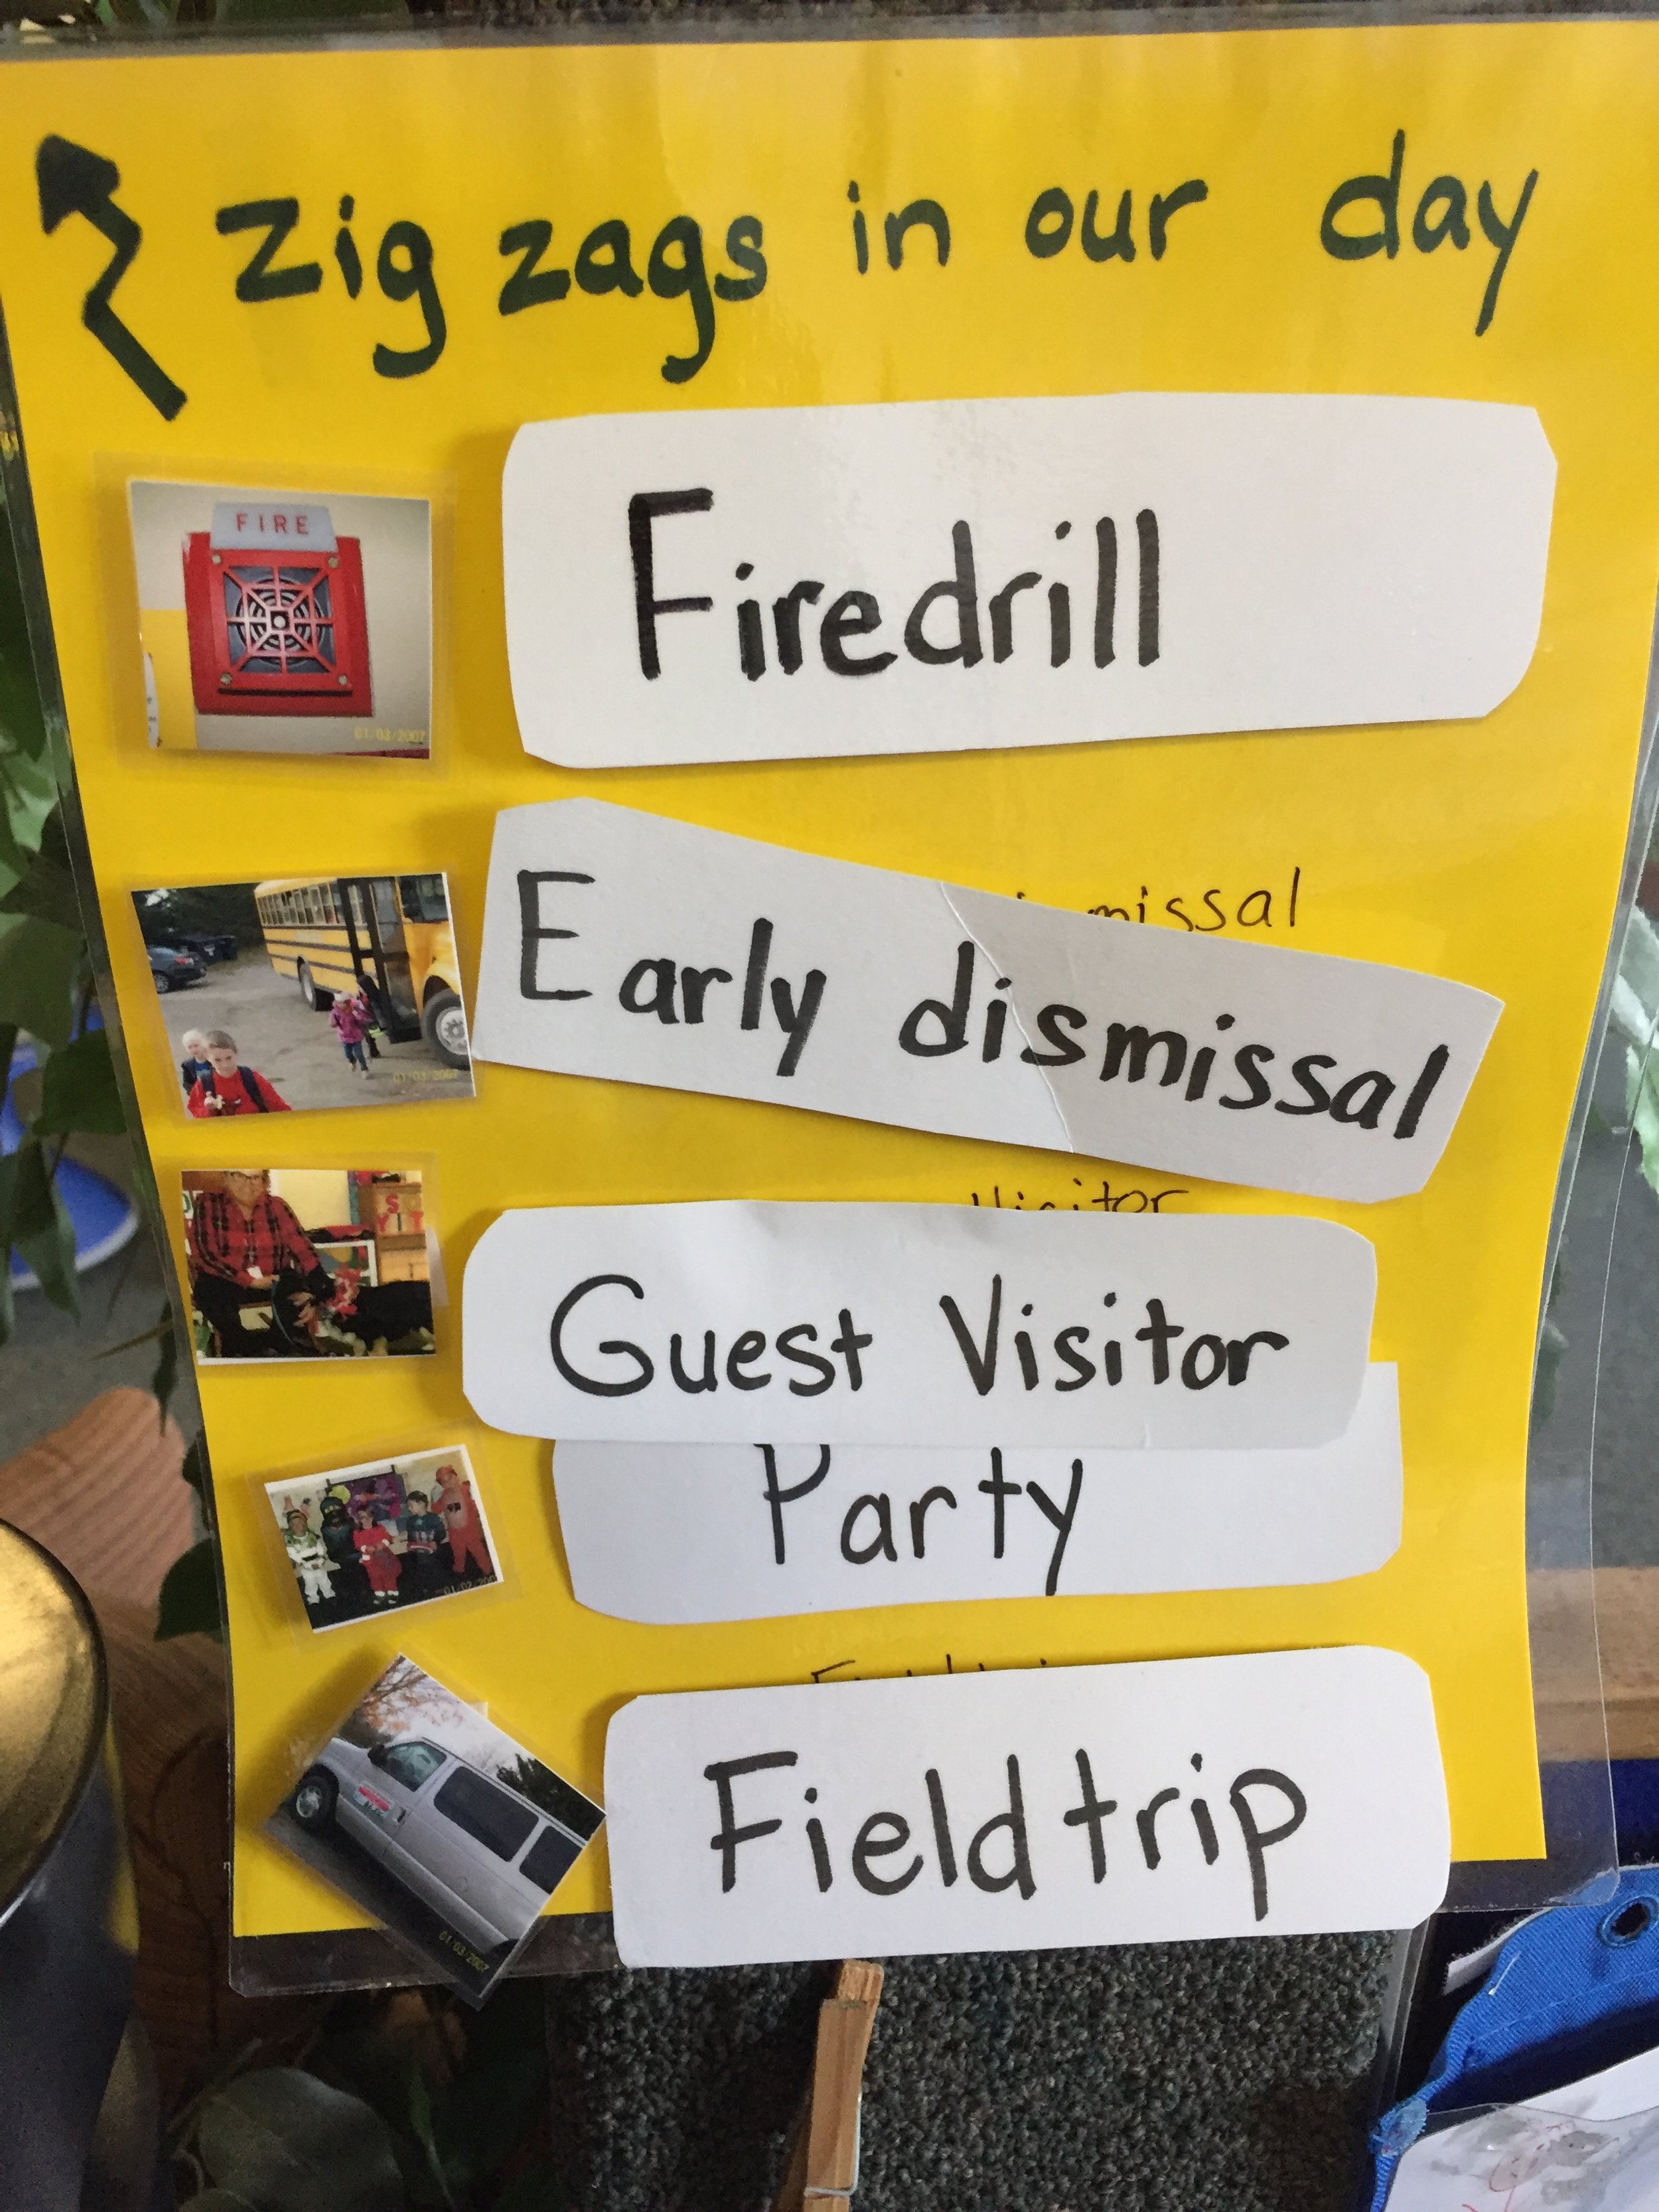 zig zags in our day
FIRE
Firedrill
01/03/2007
missal
Early dismissal
01/03/2007
Visitor
Guest Visitor
Party
Field trip
01/03/2007